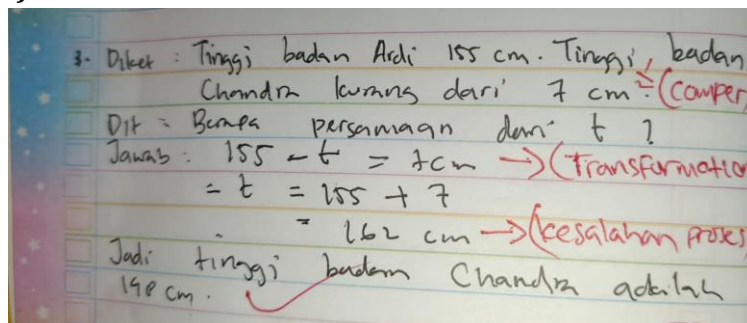 3. Diket : Tinggi badan Ardi 155 cm. Tinggi badan
Chandra kurang dari 7 cm (comper
Dit : Berapa persamaan dari t ?
Jawab : 155 - t = 7cm → (Transformatio
= t = 155 + 7
= 162 cm → (kesalahan proses
Jadi tinggi badan Chandra adalah
148 cm.